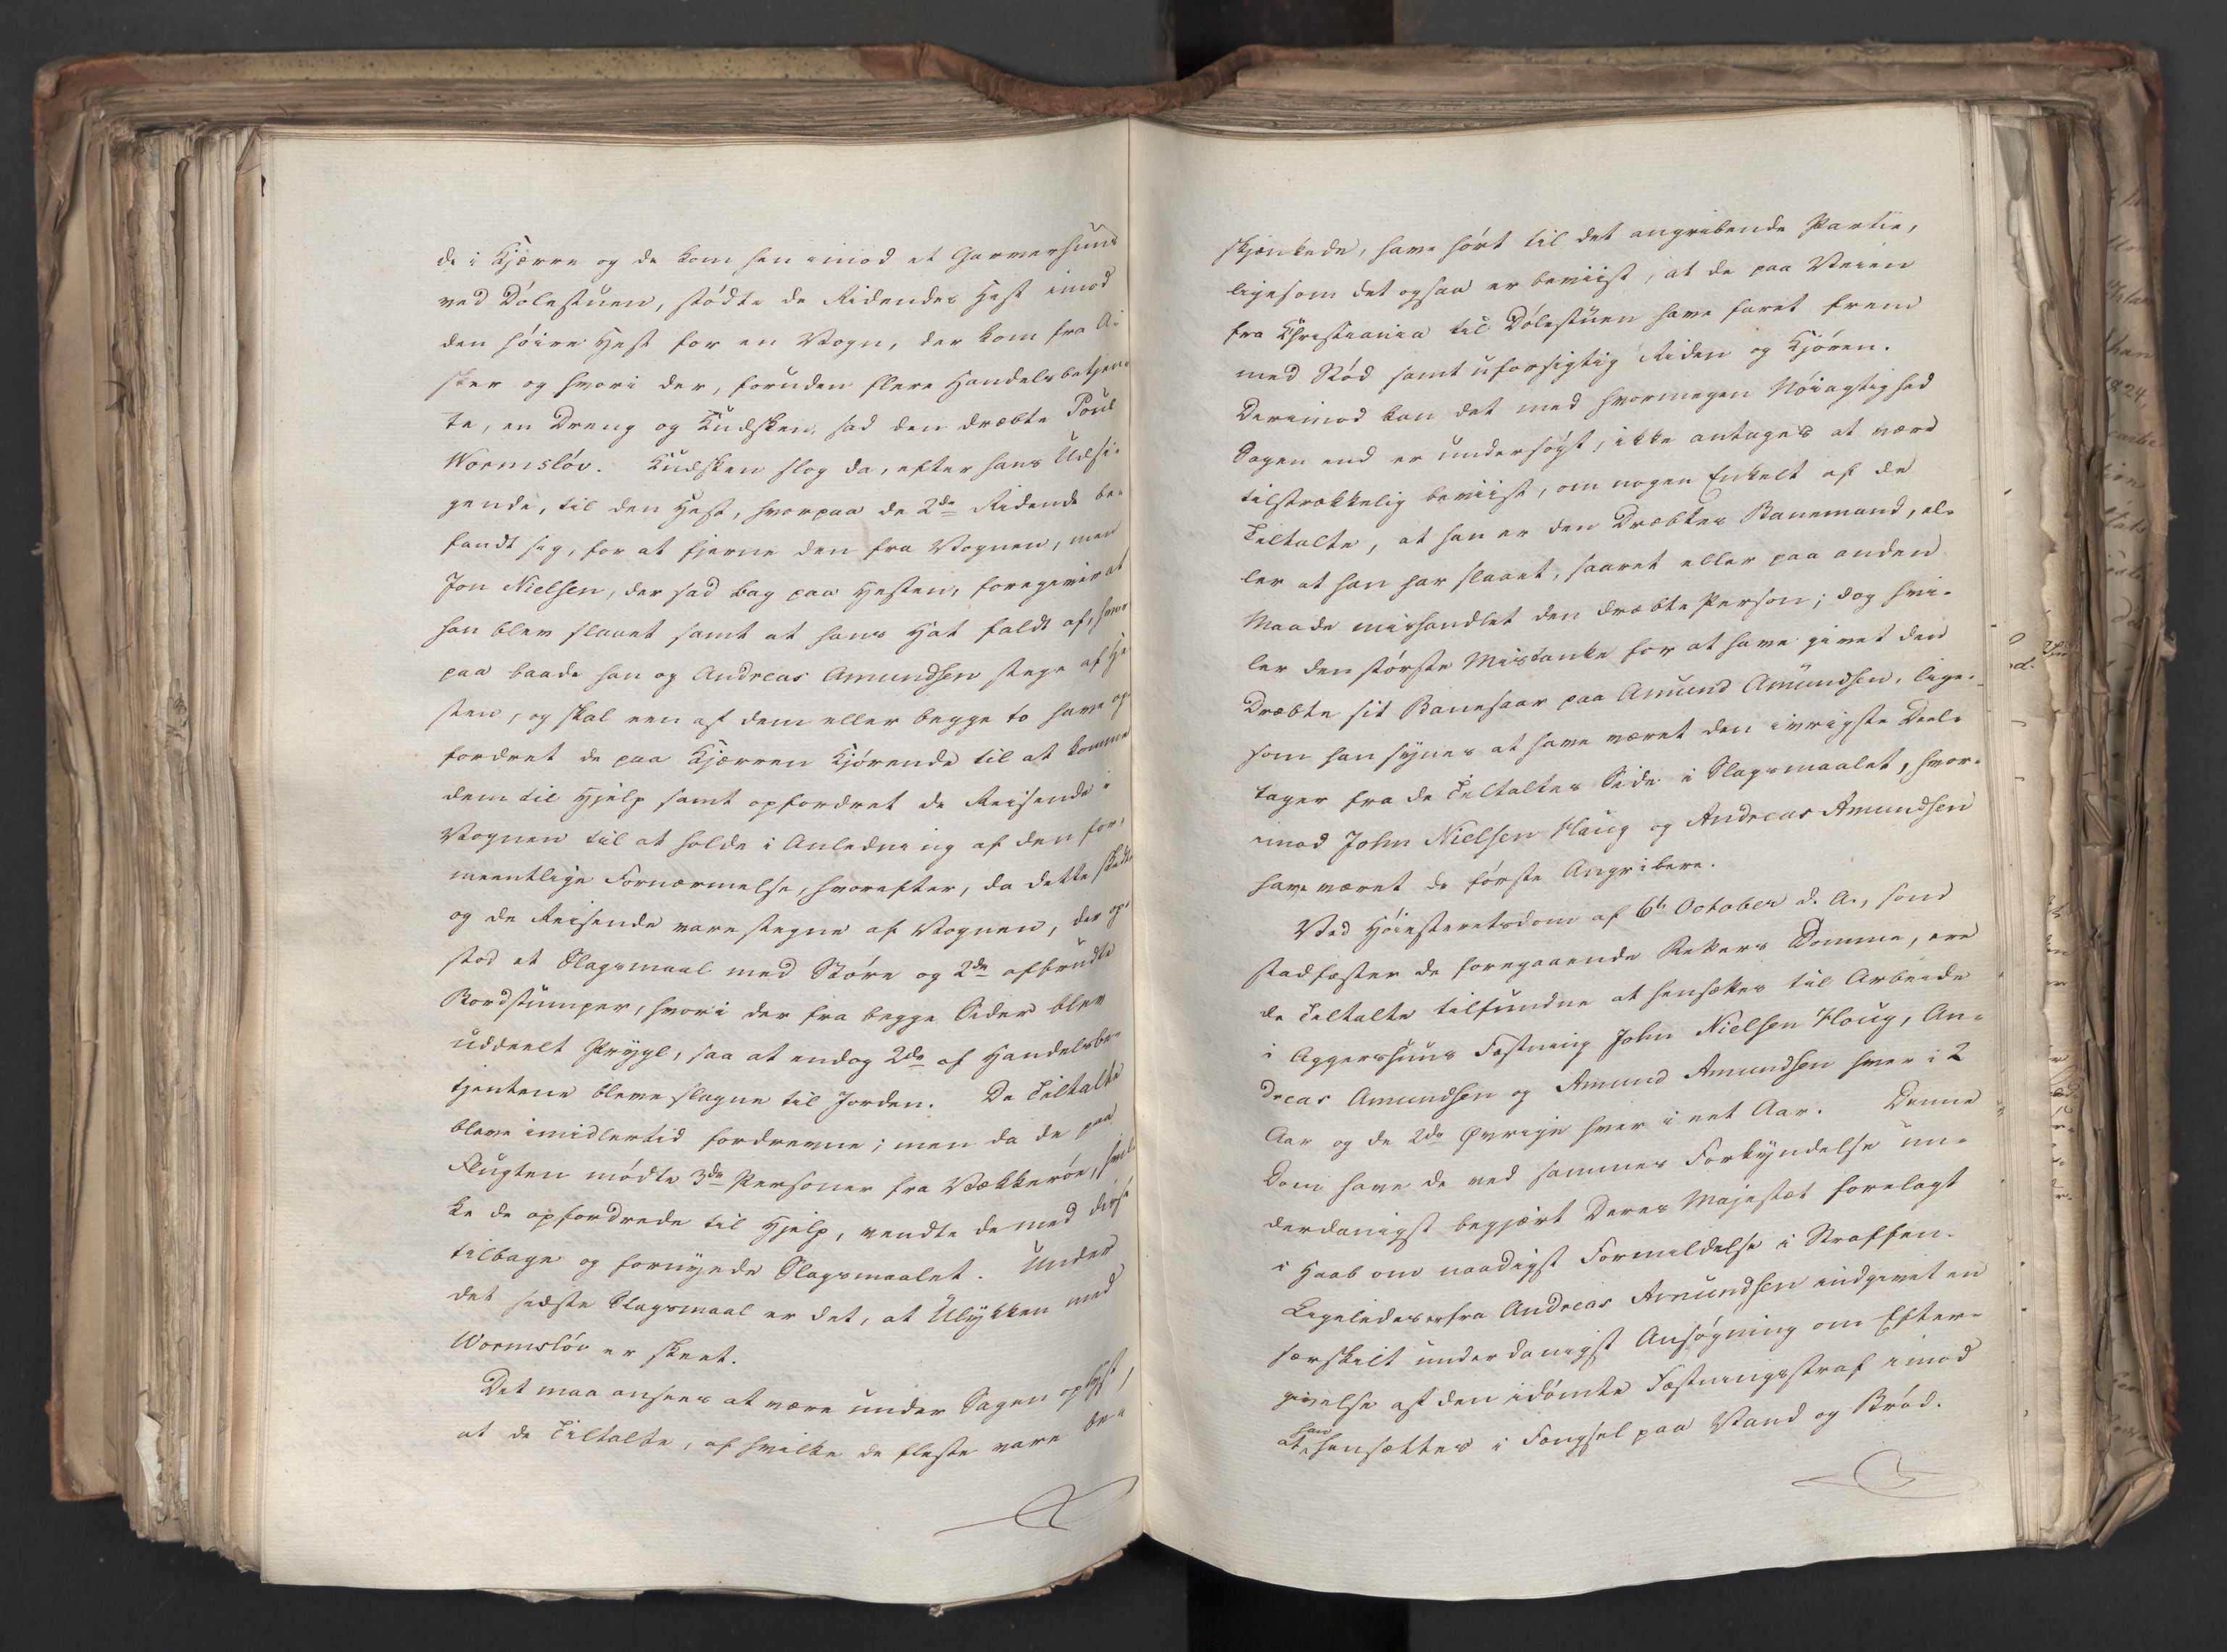 de i Kjærre og de kom hen imod et Garverhuus
ved Dølestuen, stødte de Ridendes Hest imod
den høire Hest for en Vogn, der kom fra A-
sker og hvori der, foruden flere Handelsbetjen-
te, en Dreng og Kudsken, sad den dræbte Poul
Wormsløv. Kudsken slog da, efter hans Udsi-
gende, til den Hest, hvorpaa de 2de Ridende be-
fandt sig, for at fjerne den fra Vognen, men
Jon Nielsen, der sad bag paa Hesten, foregiver at
han blev slaaet samt at hans Hat faldt af, hvor
paa baade han og Andreas Amundsen stege af He
sten, og skal een af dem eller begge to have op
fordret de paa Kjærren Kjørende til at komme
dem til Hjelp samt opfordret de Reisende i
Vognen til at holde i Anledning af den for-
meentlige Fornærmelse, hvorefter, da dette skedte
og de Reisende vare stegne af Vognen, der op-
stod et Slagsmaal med Støre og 2de afbrudte
Bordstumper, hvori der fra begge Sider blev
uddeelt Prygl, saa at endog 2de af Handelsbe-
tjentene bleve slagne til Jorden. De Tiltalte
bleve imidlertid fordrevne; men da de paa
Flugten mødte 3de Personer fra Vækkerøe, hvil-
ke de opfordrede til Hjelp, vendte de med disse
tilbage og fornyede Slagsmaalet. Under
det sidste Slagsmaal er det, at Ulykken med
Wormsløv er skeet.
Det maa ansees at være under Sagen oplyst,
at de Tiltalte, af hvilke de fleste vare be-
skjænkede, have hørt til det angribende Partie,
ligesom det ogsaa er beviist, at de paa Veien
fra Christiania til Dølestuen have faret frem
med Stød samt uforsigtig Riden og Kjøren.
Derimod kan det med hvormegen Nøiagtighed
Sagen end er undersøgt, ikke antages at være
tilstrækkelig beviist, om nogen Enkelt af de
Tiltalte, at han er den Dræbtes Banemand, el-
ler at han har slaaet, saaret eller paa anden
Maade mishandlet den dræbte Person; dog hvi-
ler den største Mistanke for at have givet den
Dræbte sit Banesaar paa Amund Amundsen, lige-
som han synes at have været den ivrigste Deel-
tager fra de Tiltaltes Side i Slagsmaalet, hvor-
imod John Nielsen Haug og Andreas Amundsen
have været de første Angribere.
Ved Høiesteretsdom af 6te October d. A., som
stadfæster de foregaaende Retters Domme, ere
de Tiltalte tilfundne at hensættes til Arbeide
i Aggershuus Fæstning John Nielsen Houg, An-
dreas Amundsen og Amund Amundsen hver i 2
Aar og de 2de Øvrige hver i eet Aar. Denne
Dom have de ved sammes Forkyndelse un-
derdanigst begjært Deres Majestæt forelagt
i Haab om naadigst Formildelse i Straffen.
Ligeledes er fra Andreas Amundsen indgivet en
særskilt underdanigst Ansøgning om Efter-
givelse af den idømte Fæstningsstraf imod
at han hensættes i Fængsel paa Vand og Brød.